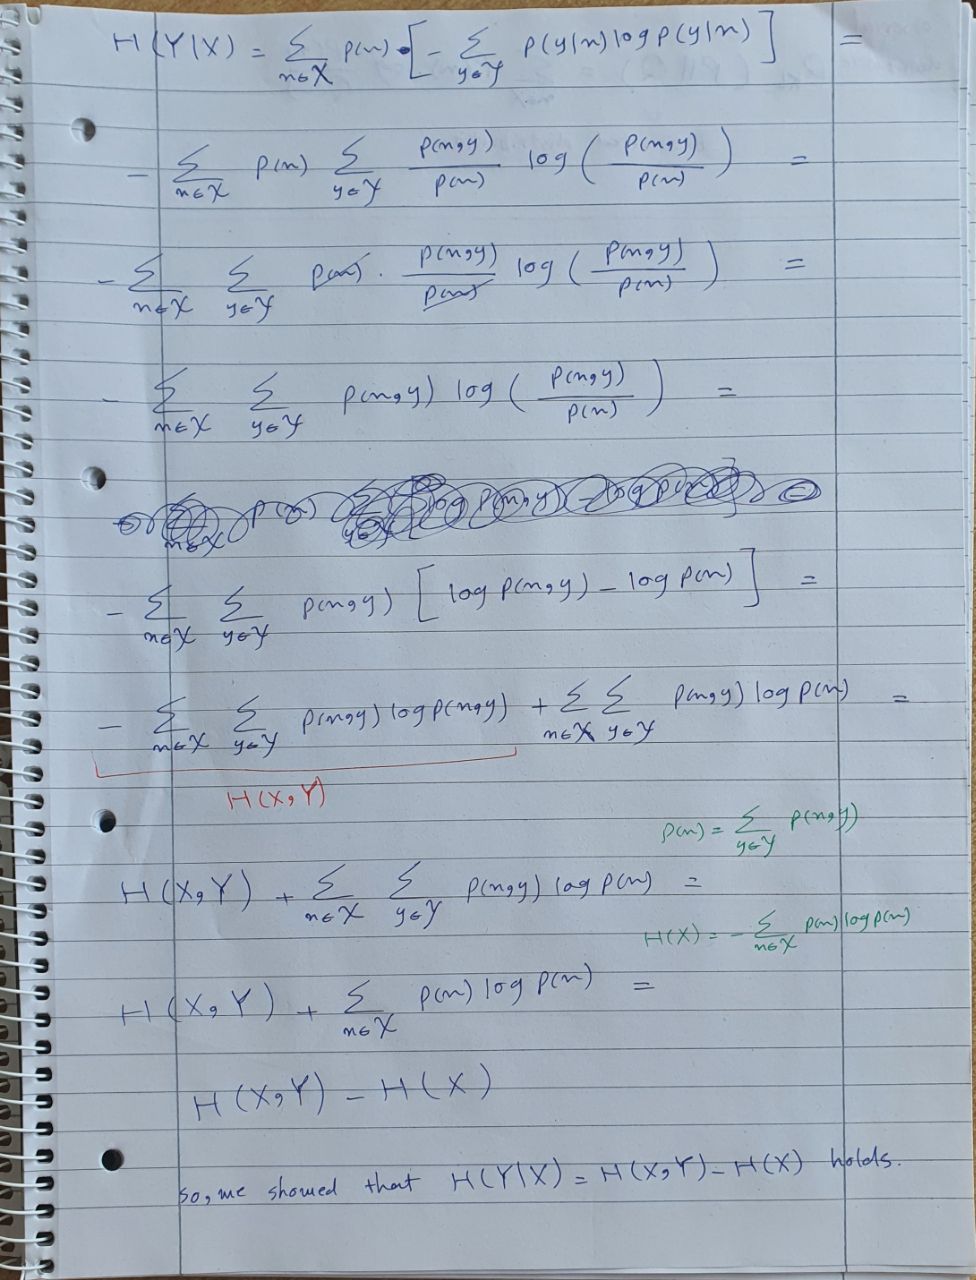 H(Y|X) = Σ_{x∈X} p(x) · [ - Σ_{y∈Y} p(y|x) log p(y|x) ] =
- Σ_{x∈X} p(x) Σ_{y∈Y} p(x,y)/p(x) log ( p(x,y)/p(x) ) =
- Σ_{x∈X} Σ_{y∈Y} p(x) · p(x,y)/p(x) log ( p(x,y)/p(x) ) =
- Σ_{x∈X} Σ_{y∈Y} p(x,y) log ( p(x,y)/p(x) ) =
- Σ_{x∈X} Σ_{y∈Y} p(x,y) [ log p(x,y) - log p(x) ] =
- Σ_{x∈X} Σ_{y∈Y} p(x,y) log p(x,y) + Σ_{x∈X} Σ_{y∈Y} p(x,y) log p(x) =
H(X,Y)
p(x) = Σ_{y∈Y} p(x,y)
H(X,Y) + Σ_{x∈X} Σ_{y∈Y} p(x,y) log p(x) =
H(X) = - Σ_{x∈X} p(x) log p(x)
H(X,Y) + Σ_{x∈X} p(x) log p(x) =
H(X,Y) - H(X)
so, we showed that H(Y|X) = H(X,Y) - H(X) holds.